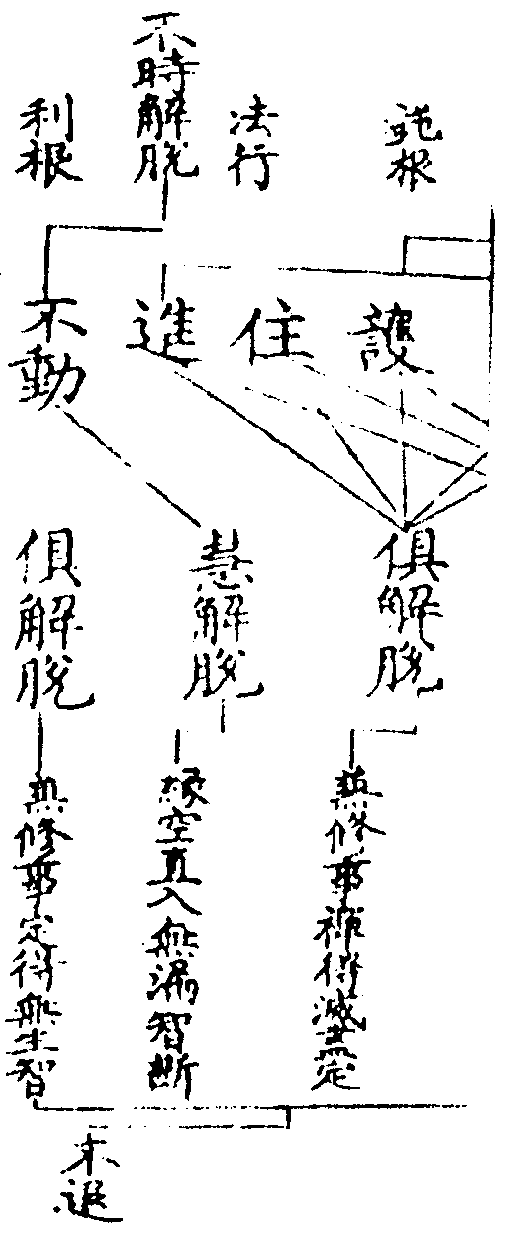 鈍根
法行
不時解脫
利根
護
住
進
不動
俱解脫
慧解脫
俱解脫
兼修事禪得滅盡定
緣空直入無漏智斷
兼修事定得無生智
不退